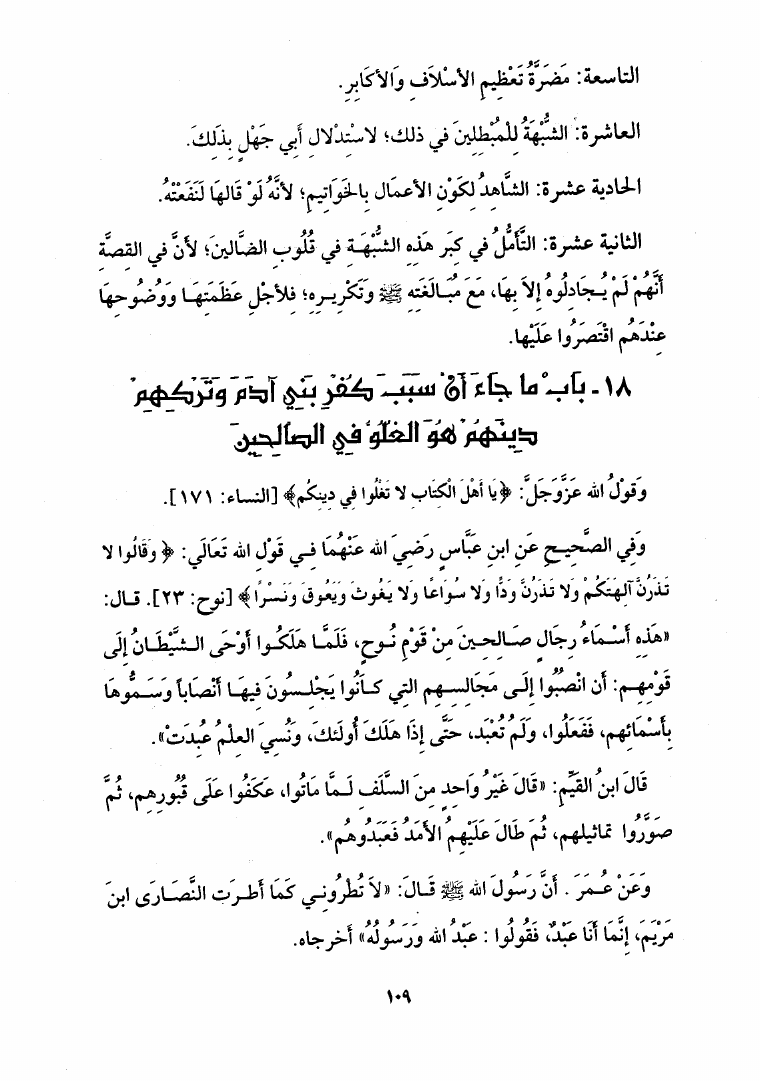 التاسعة: مَضَرَّةُ تَعْظِيمِ الأسْلَافِ وَالأكَابِرِ.
العاشرة: الشُّبْهَةُ للْمُبْطِلِينَ في ذلك؛ لاسْتِدْلالِ أبي جَهْلٍ بِذَلِكَ.
الحادية عشرة: الشَّاهِدُ لِكَوْنِ الأعمَال بِالخَوَاتِيمِ؛ لأنَّهُ لَوْ قَالهَا لَنَفَعَتْهُ.
الثانية عشرة: التَّأمُّلُ في كِبَرِ هَذِهِ الشُّبْهَةِ في قُلُوبِ الضَّالينَ؛ لأنَّ في القصةِ
أنَّهُمْ لَمْ يُجَادِلُوهُ إلاَ بِهَا، مَعَ مُبَالَغَتِهِ ﷺ وَتَكْرِيرِهِ؛ فلأجْلِ عَظَمَتِهَا وَوُضُوحِهَا
عِنْدَهُم اقْتَصَرُوا عَلَيْها.
١٨ - بَابُ ما جَاءَ أنَّ سَبَبَ كُفْرِ بَنِي آدَمَ وَتَرْكِهِمْ
دِينَهُمْ هُوَ الغُلُوُّ فِي الصَّالِحِينَ
وَقَوْلُ الله عَزَّوَجَلَّ: ﴿يَا أَهْلَ الْكِتَابِ لا تَغْلُوا فِي دِينِكُم﴾ [النساء: ١٧١].
وَفِي الصَّحِيحِ عَنِ ابنِ عَبَّاسٍ رَضِيَ الله عَنْهُمَا فِي قَوْلِ الله تَعَالَي: ﴿ وَقَالُوا لا
تَذَرُنَّ آلِهَتَكُمْ وَلا تَذَرُنَّ وَدًّا وَلا سُوَاعًا وَلا يَغُوثَ وَيَعُوقَ وَنَسْرًا ﴾ [نوح: ٢٣]. قال:
«هَذِهِ أسْمَاءُ رِجَالٍ صَالِحِينَ مِنْ قَوْمِ نُوحٍ، فَلَمَّا هَلَكُوا أوْحَى الشَّيْطَانُ إلَى
قَوْمِهِم: أن انْصُبُوا إلَى مَجَالِسِهِم التي كَانُوا يَجْلِسُونَ فِيهَا أنْصَاباً وَسَمُّوهَا
بِأسْمَائهِم، فَفَعَلُوا، وَلَمْ تُعْبَد، حَتَّى إذَا هَلَكَ أُولَئكَ، وَنُسِيَ العِلْمُ عُبِدَتْ».
قَالَ ابنُ القَيِّمِ: «قَالَ غَيْرُ وَاحِدٍ مِنَ السَّلَفِ لَمَّا مَاتُوا، عَكَفُوا عَلَى قُبُورِهِم، ثُمَّ
صَوَّرُوا تماثيلهم، ثُمَّ طَالَ عَلَيْهِمُ الأمَدُ فَعَبَدُوهُم».
وَعَنْ عُمَرَ . أنَّ رَسُولَ الله ﷺ قَالَ: «لاَ تُطْرُونِي كَمَا أطرَت النَّصَارَى ابنَ
مَرْيَمَ، إنَّمَا أنَا عَبْدٌ، فَقُولُوا : عَبْدُ الله وَرَسُولُهُ» أخرجاه.
١٠٩